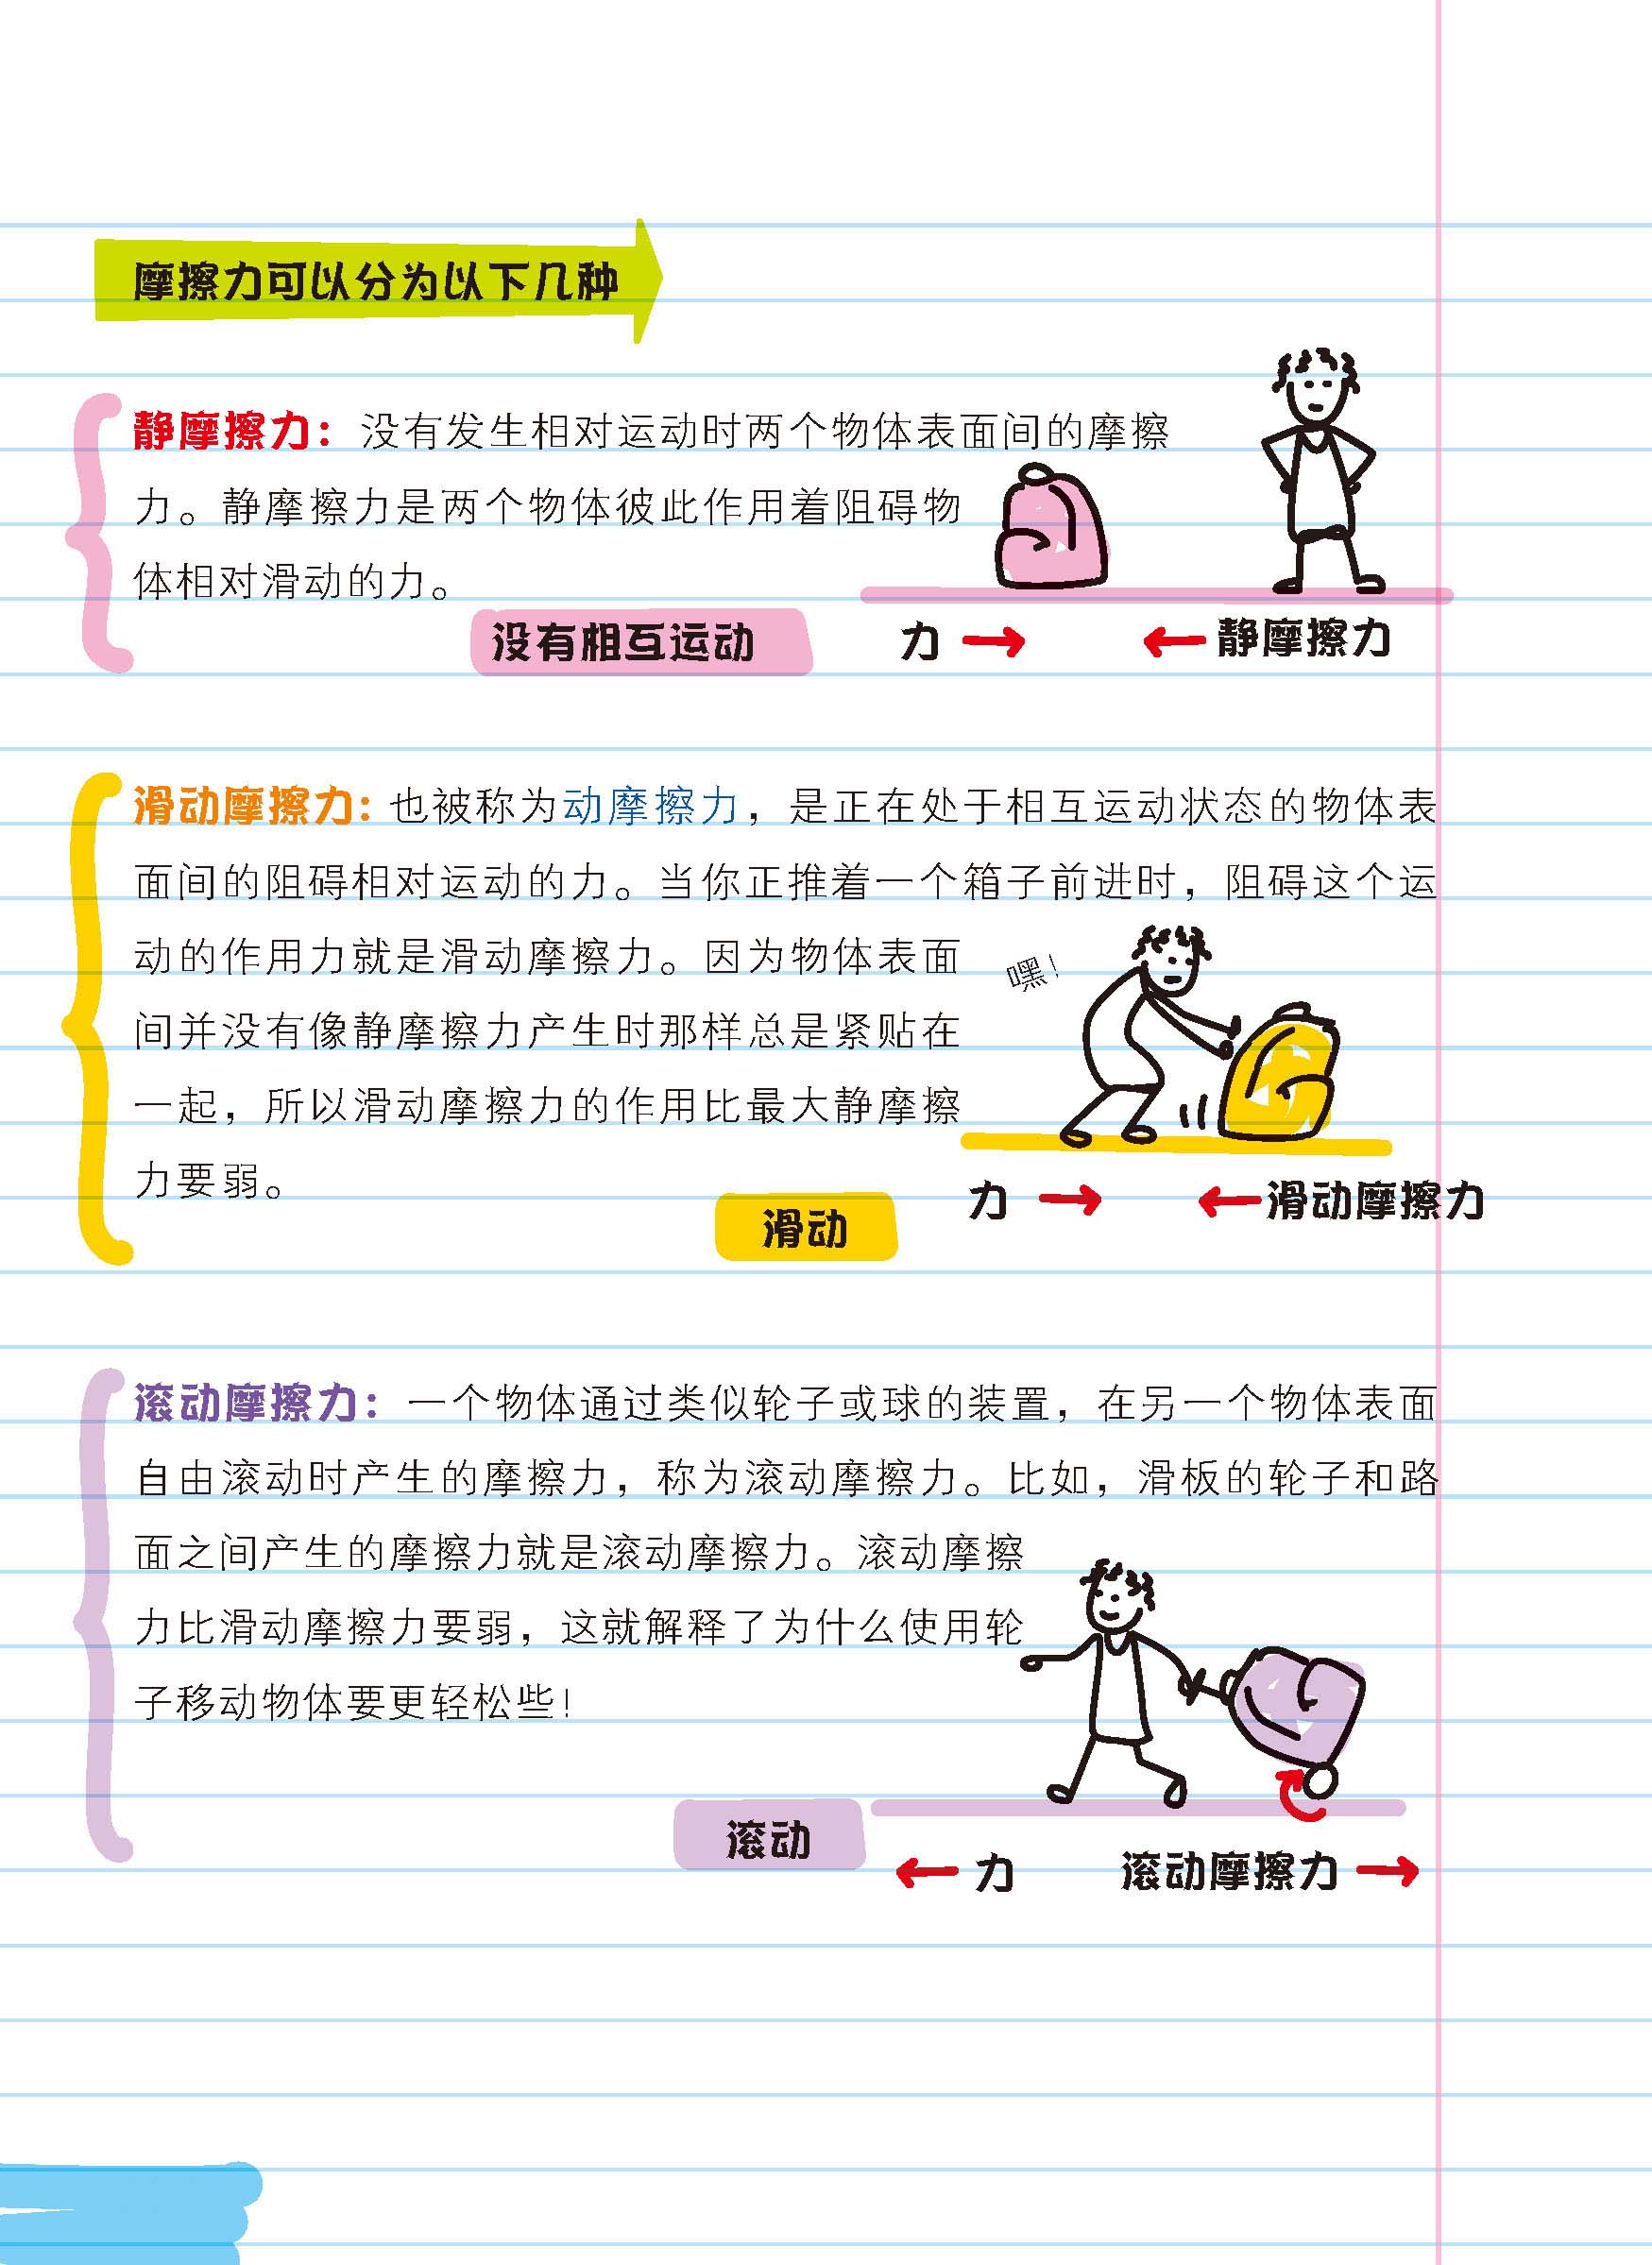 摩擦力可以分为以下几种
静摩擦力：没有发生相对运动时两个物体表面间的摩擦
力。静摩擦力是两个物体彼此作用着阻碍物
体相对滑动的力。
没有相互运动
力
静摩擦力
滑动摩擦力：也被称为动摩擦力，是正在处于相互运动状态的物体表
面间的阻碍相对运动的力。当你正推着一个箱子前进时，阻碍这个运
动的作用力就是滑动摩擦力。因为物体表面
间并没有像静摩擦力产生时那样总是紧贴在
一起，所以滑动摩擦力的作用比最大静摩擦
力要弱。
嘿！
滑动
力
滑动摩擦力
滚动摩擦力：一个物体通过类似轮子或球的装置，在另一个物体表面
自由滚动时产生的摩擦力，称为滚动摩擦力。比如，滑板的轮子和路
面之间产生的摩擦力就是滚动摩擦力。滚动摩擦
力比滑动摩擦力要弱，这就解释了为什么使用轮
子移动物体要更轻松些！
滚动
力
滚动摩擦力